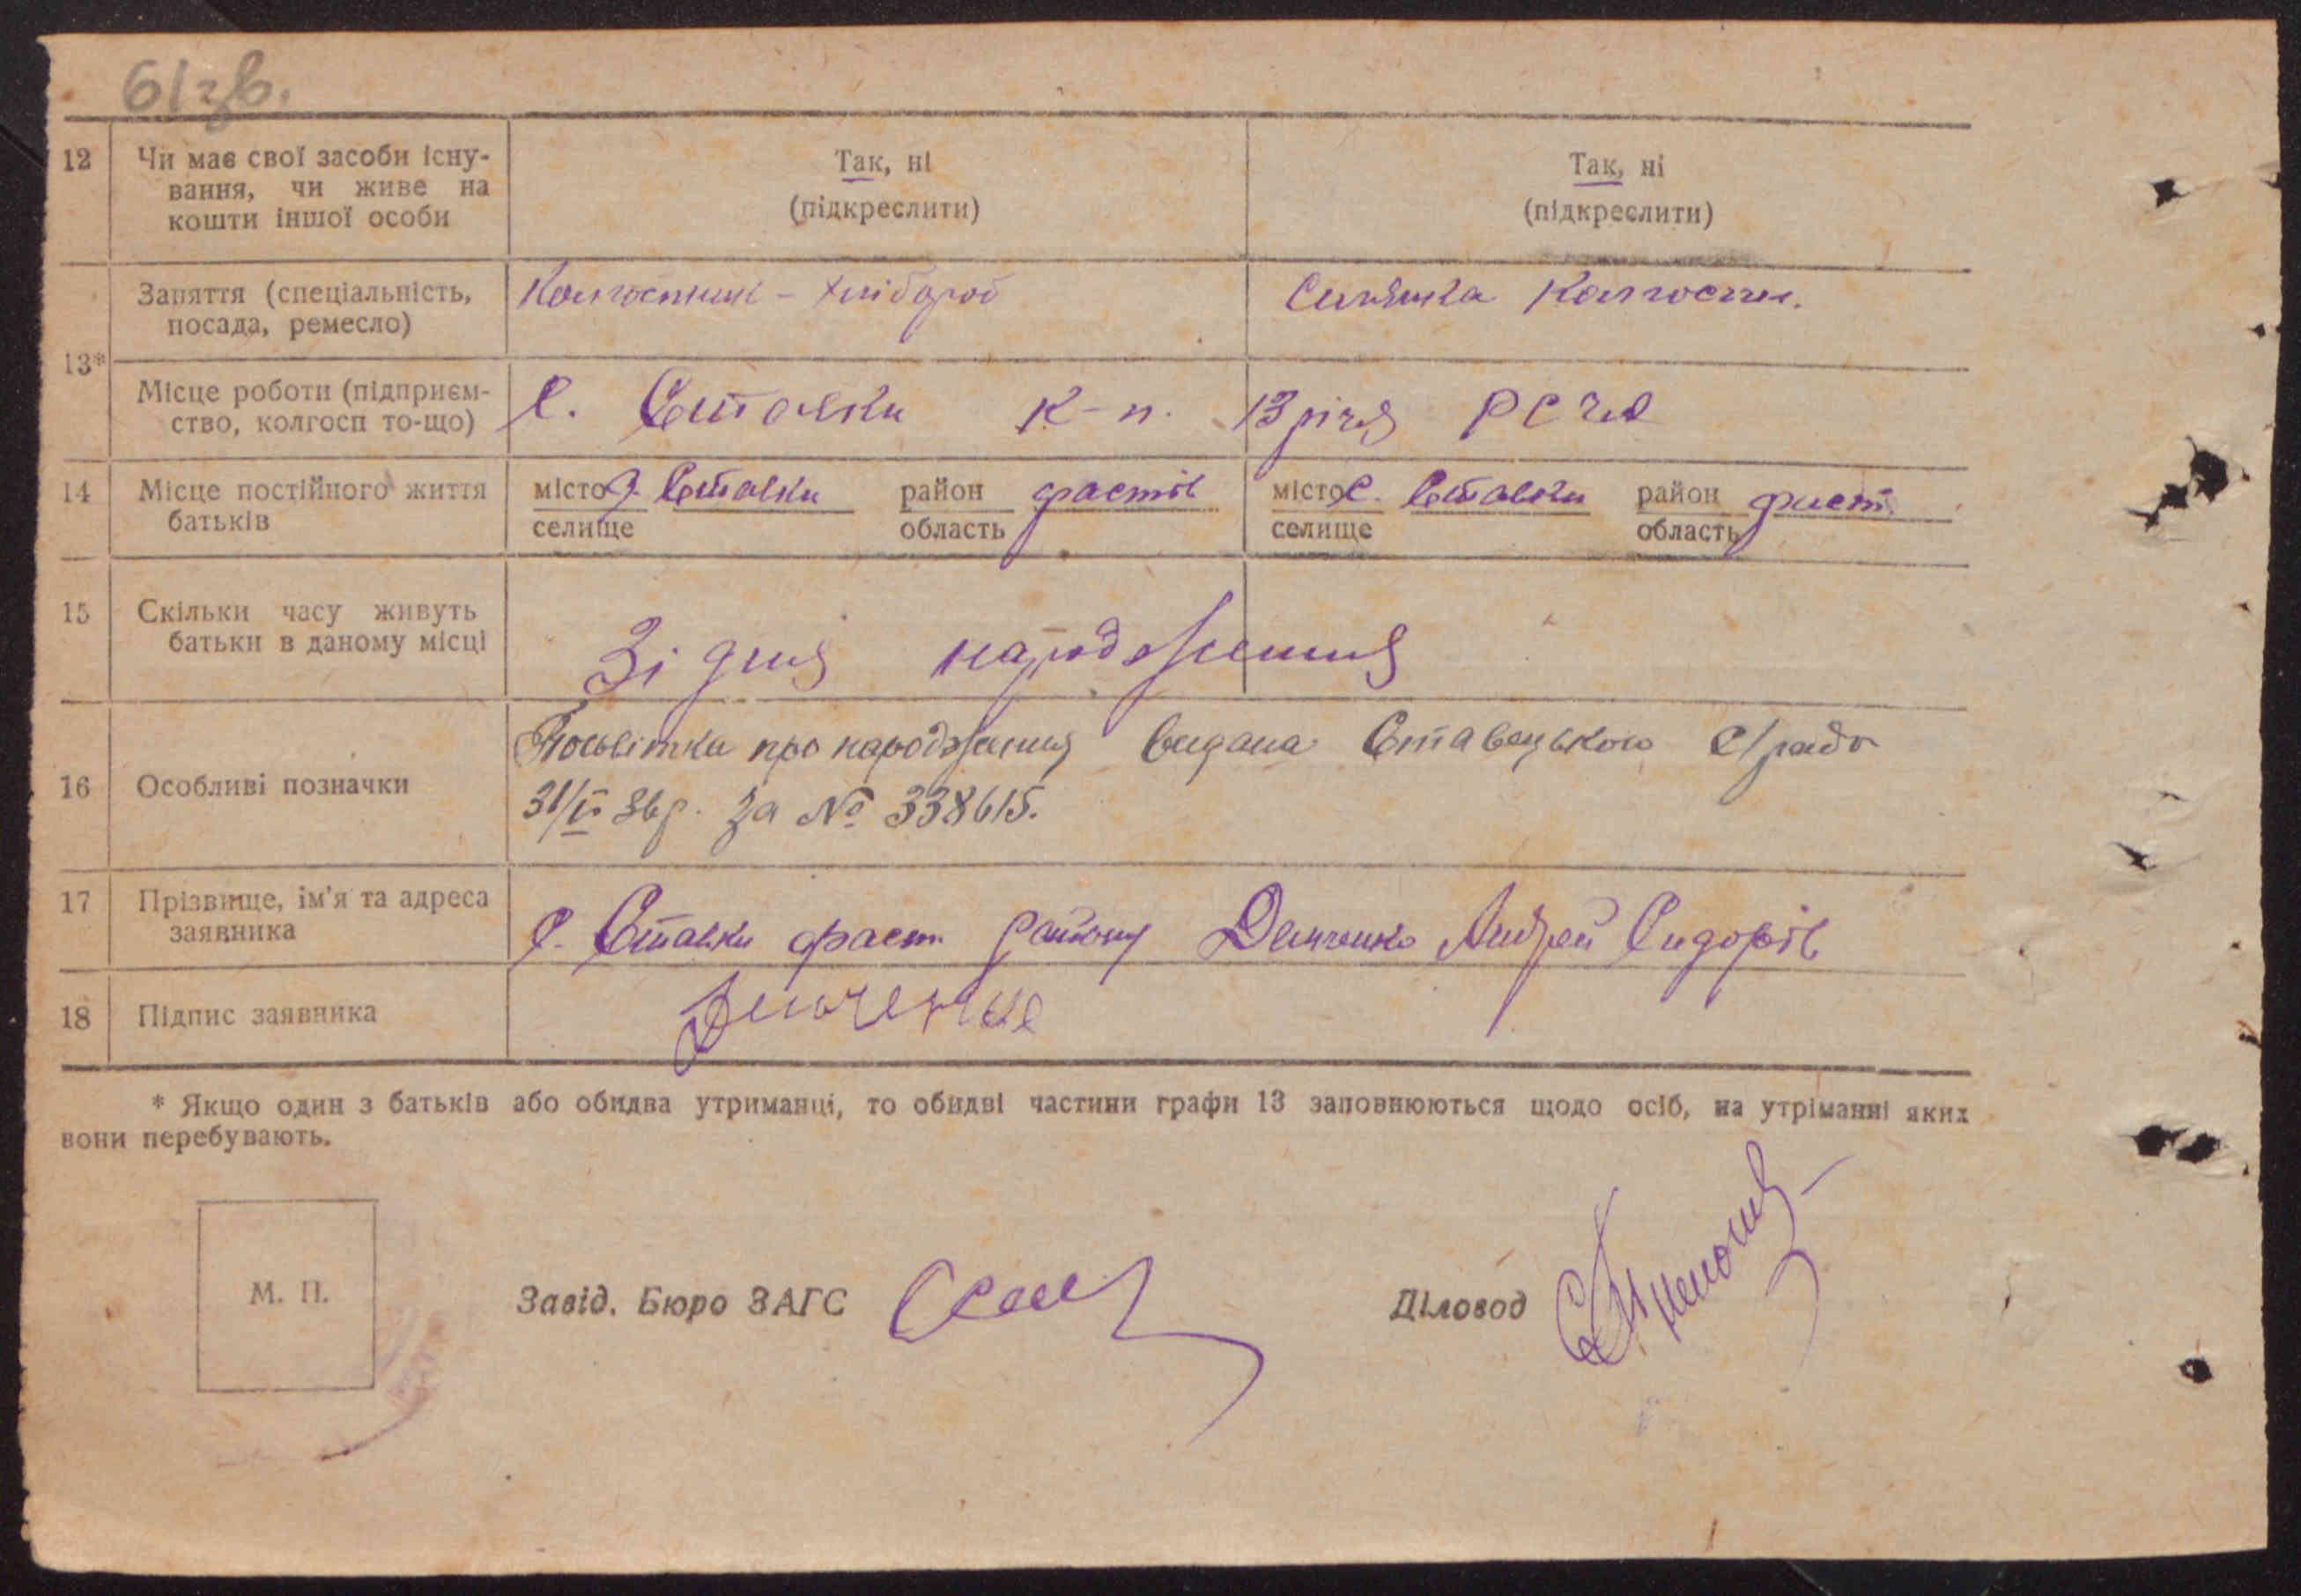 61зв.
12 Чи має свої засоби існу-
вання, чи живе на
кошти іншої особи
Так, ні
(підкреслити)
Так, ні
(підкреслити)
13*
Заняття (спеціальність,
посада, ремесло)
Колгоспник - хлібороб
Селянка колгоспн.
Місце роботи (підприєм-
ство, колгосп то-що)
с. Ставки к-п. 13 річчя РСЧА
14 Місце постійного життя
батьків
місто с. Ставки район фастів
селище область
місто с. Ставки район фаст.
селище область
15 Скільки часу живуть
батьки в даному місці
Зі дня народження
16 Особливі позначки
Посвітка про народження видана Ставецькою с/радо
31/V 36р. за № 338615.
17 Прізвище, ім'я та адреса
заявника
с. Ставки фаст. району Демченко Андрей Сидорів
18 Підпис заявника
Демченко
* Якщо один з батьків або обидва утриманці, то обидві частини графи 13 заповнюються щодо осіб, на утріманні яких
вони перебувають.
М. П.
Завід. Бюро ЗАГС
Діловод